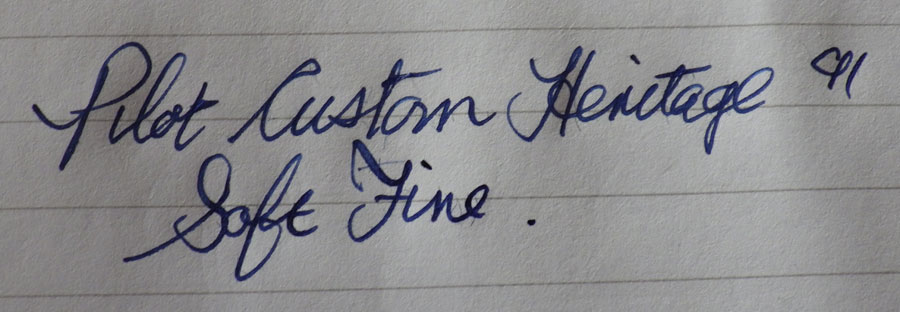 Pilot Custom Heritage 91
Soft Fine.